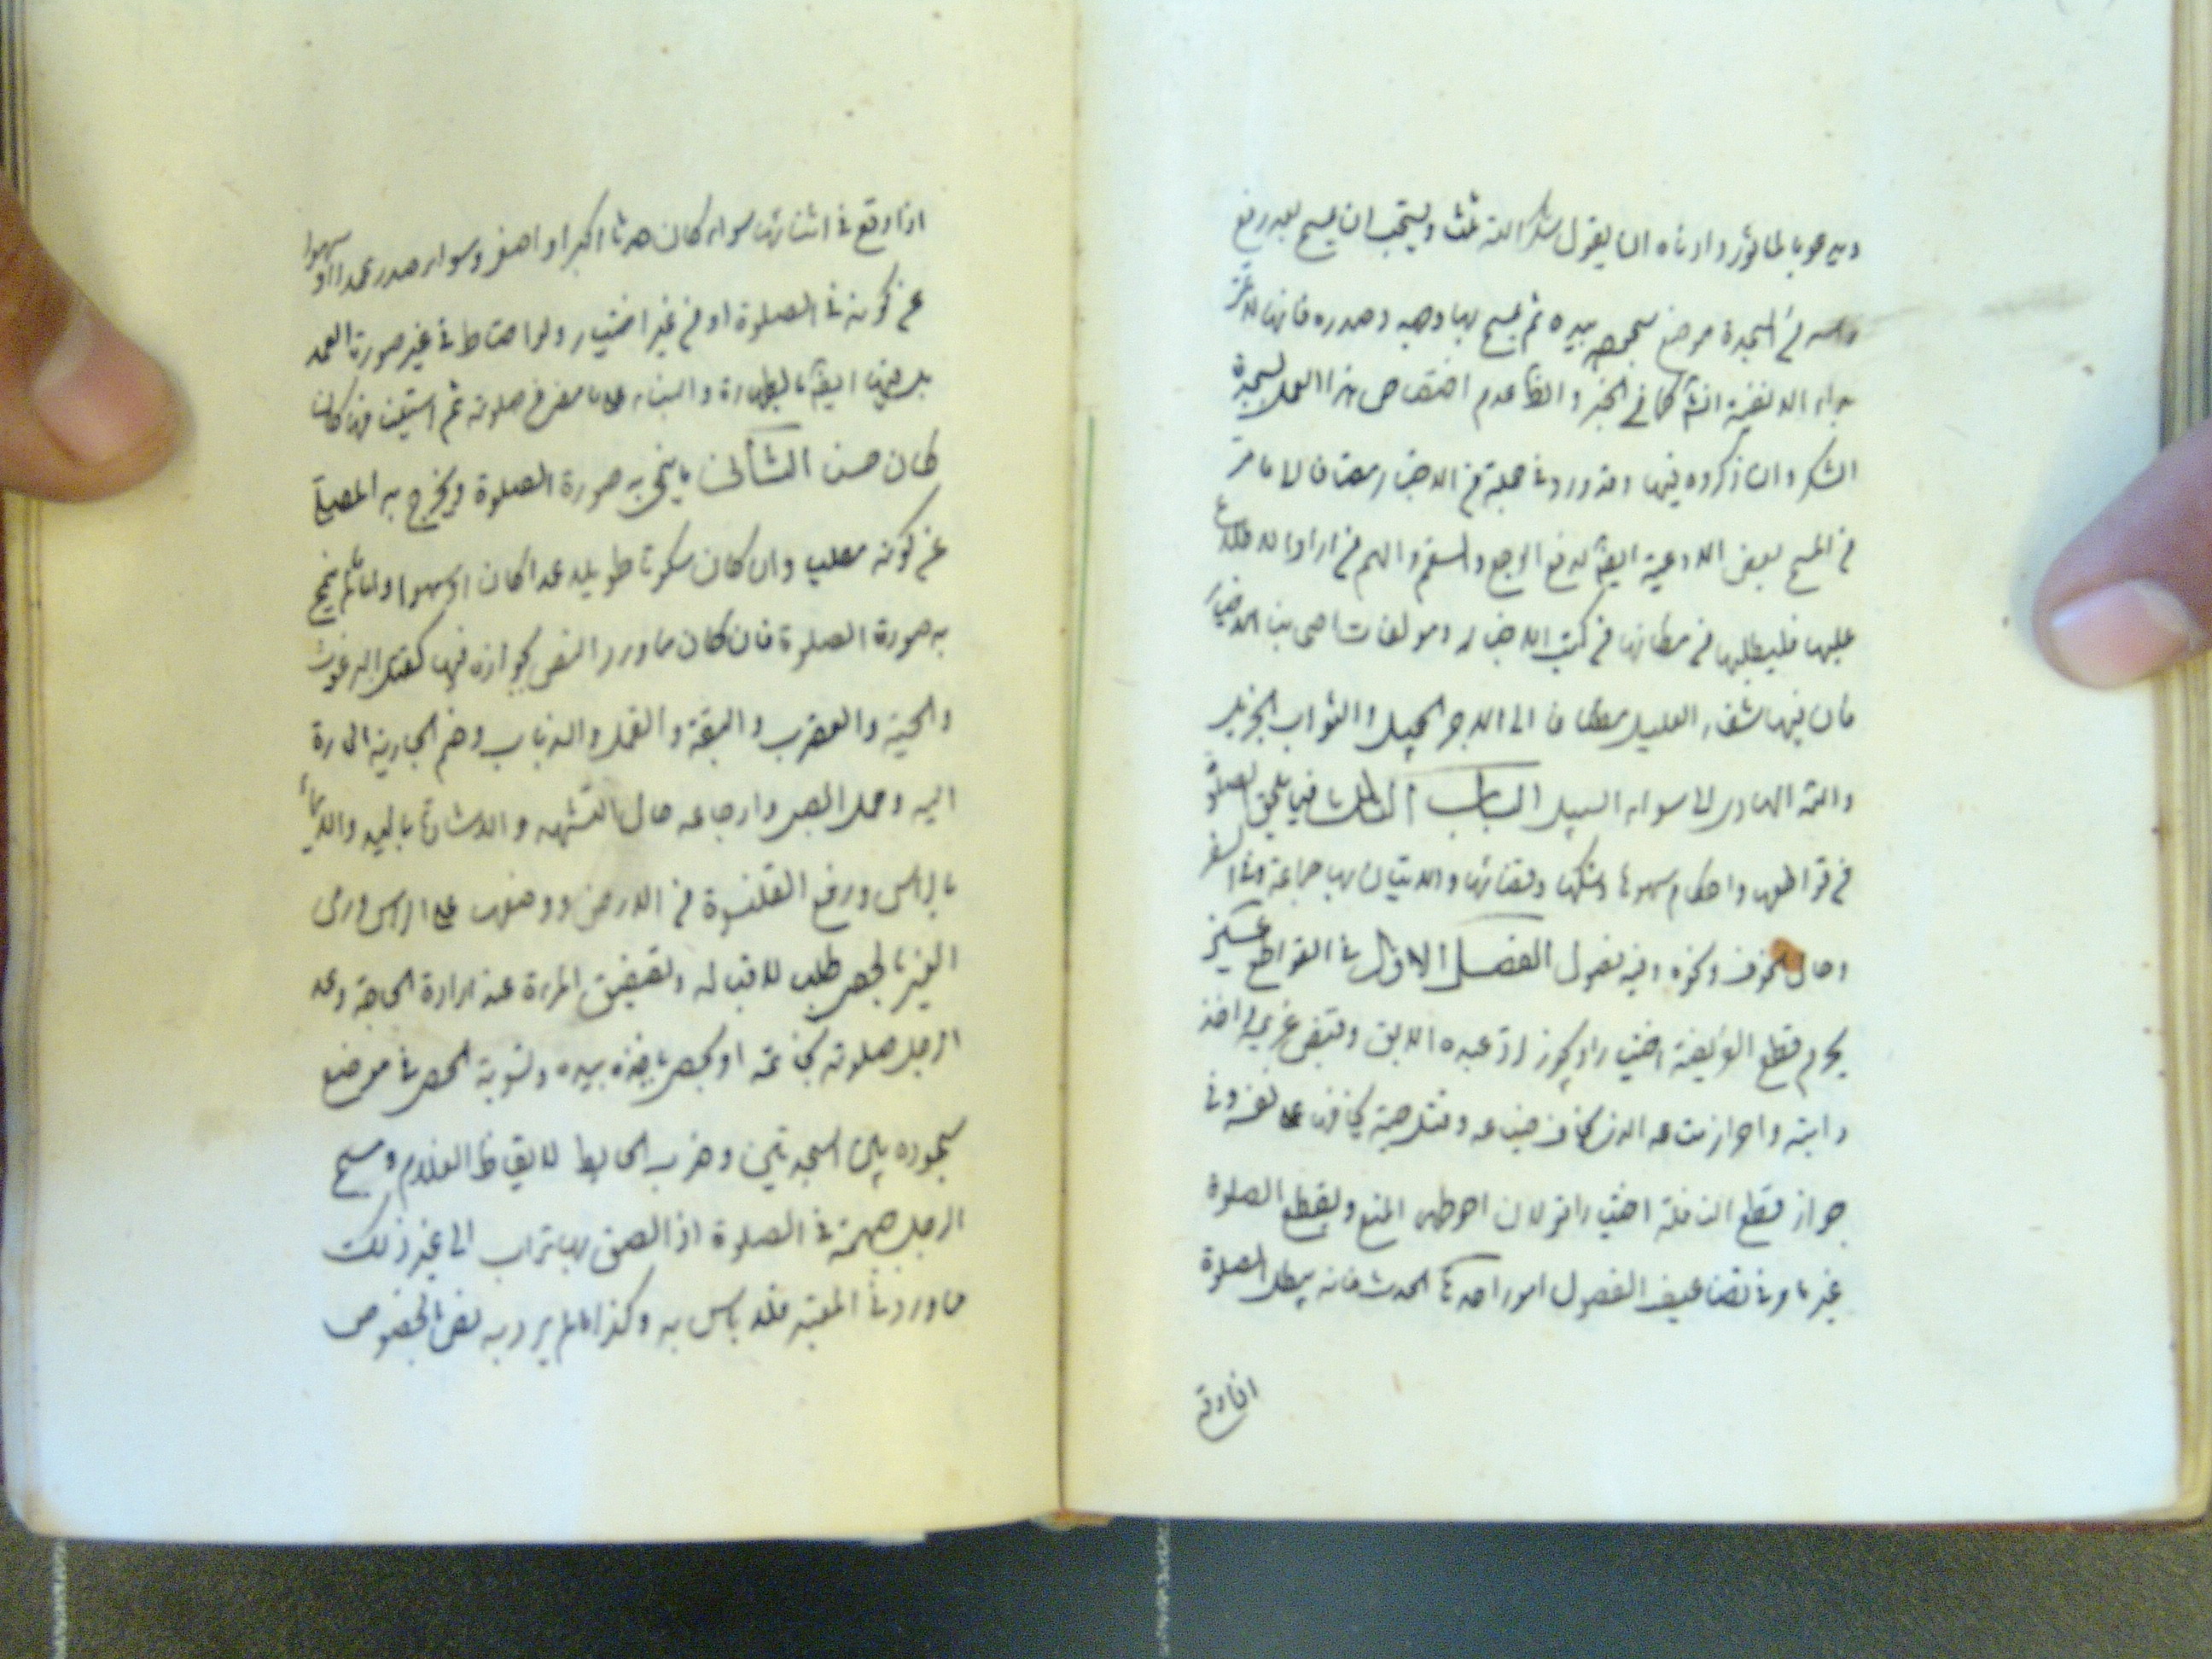 ويدعو بالمأثور وادناه ان يقول شكرا لله ثلثا ويستحب ان يمسح بعد رفع
راسه من السجدة موضع سجوده بيده ثم يمسح بها وجهه وصدره فانها
الدفينة انشه كما في الخبر والظ عدم اختصاص هذا العمل بسجدة
الشكر وان ذكروه فيها وقد ورد في جملة من الاخبار مضافا لا ما مر
في المسح بعض الادعية ايضا لدفع الوجع والسقم والهم فمن اراد الاطلاع
عليها فليطلبها من مظانها في كتب الاخبار ومولفات اصحابنا الاخيار
فان فيها شفاء العليل مضافا الى الاجر الجميل والثواب الجزيل
والله الهادي لا سواه السبيل الباب الثالث فيما يلحق الصلوة
من قواطعها واحكام سهوها وشكها وقضائها والاتيان بها جماعة وفي السفر
وحال الخوف ونحوه وفيه فصول الفصل الاول في القواطع
يحرم قطع الفريضة اختيارا ويجوز لرد عبده الابق وقبض غريم واخذ
دابته واحراز متاعه الذي خاف ضياعه وقتل حية يخافها على نفسه وفي
جواز قطع النافلة اختيارا قولان احوطهما المنع ويقطع الصلوة
غير ما في تضاعيف الفصول امور احدها الحدث فانه يبطل الصلوة
اذا وقع
اذا وقع في اثنائها سواء كان حدثا اكبر او اصغر وسواء صدر عمدا او سهوا
عن كونه في الصلوة او من غير اختيار ولو احتاط في غير صورة العمد
بالطهارة والبناء على ما مضى من صلوته ثم استيناف
لكان حسنا الثاني ما ينمحي به صورة الصلوة ويخرج به المصلي
عن كونه مصليا وان كان سكوتا طويلا عمدا كان او سهوا واما ما لم ينمح
به صورة الصلوة فان كان مما ورد النص بجوازه فيها كقتل البرغوث
والحية والعقرب والبقة والقمل والذباب وضم الجارية المارة
اليه وحمل الصبي وارضاعه حال التشهد والاشارة باليد والايماء
بالراس ورفع القلنسوة من الارض ووضعها على الراس ورمي
الغير بالحصى طلبا لاقباله وتصفيق المرءة عند ارادة الحاجة وعد
الرجل صلوته بخاتمه او بحصى ياخذه بيده وتسوية الحصى في موضع
سجوده بين السجدتين وضرب الحايط لايقاظ الغلام ومسح
الرجل جبهته في الصلوة اذا لصق بها تراب الى غير ذلك
مما ورد في المعتبرة فلا باس به وكذا ما لم يرد به نص بالخصوص